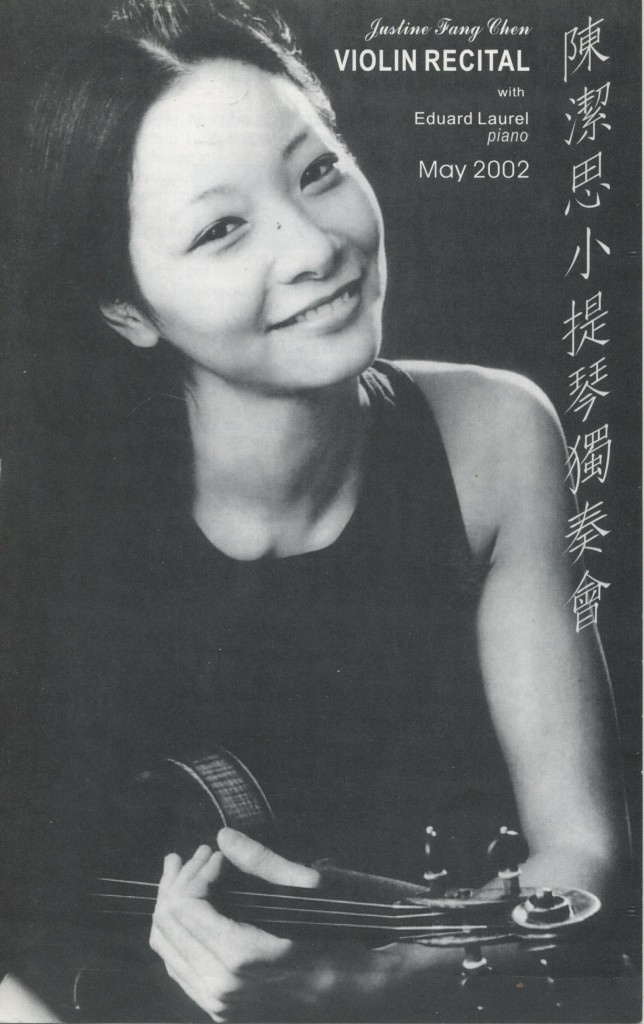 Justine Fang Chen
VIOLIN RECITAL
with
Eduard Laurel
piano
May 2002
陳潔思小提琴獨奏會